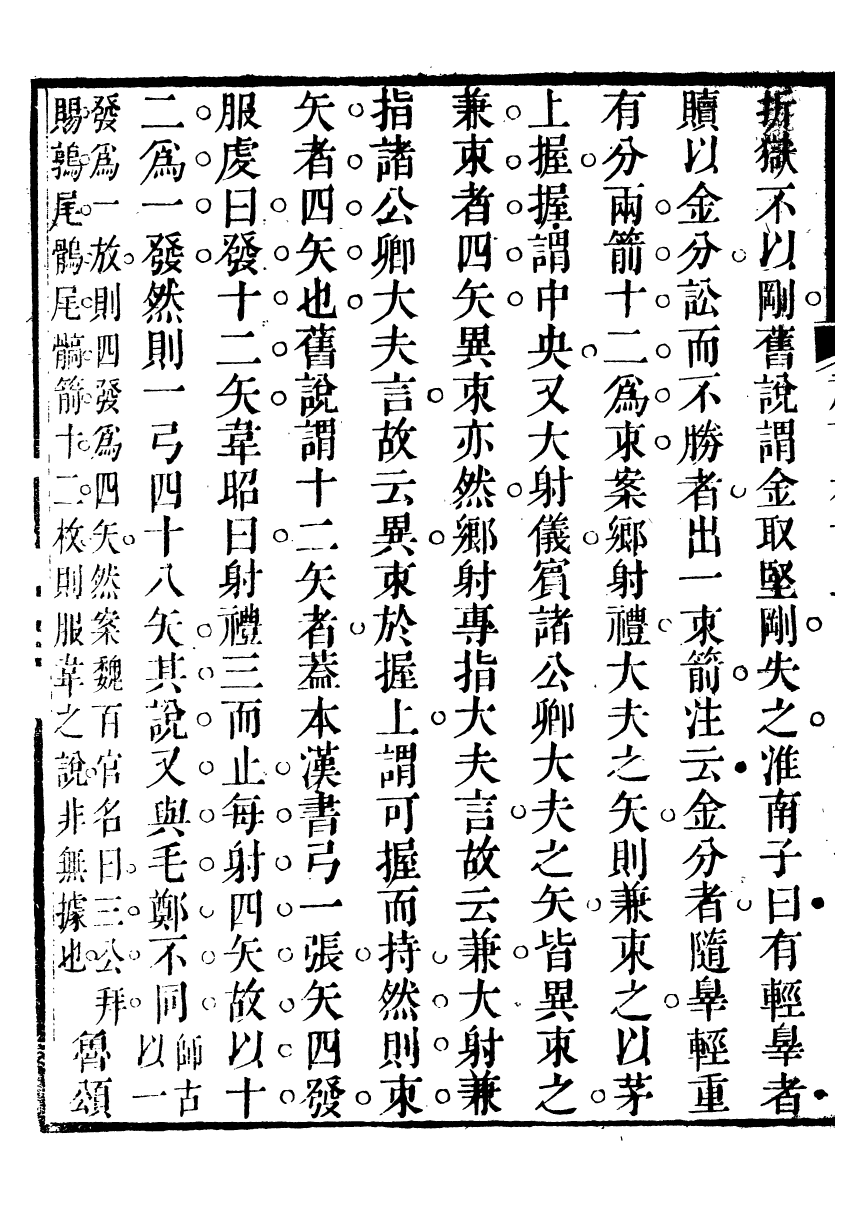 折獄不以剛舊說謂金取堅剛失之淮南子曰有輕辠者
贖以金分訟而不勝者出一束箭注云金分者隨辠輕重
有分兩箭十二為束案鄉射禮大夫之矢則兼束之以茅
上握握謂中央又大射儀賓諸公卿大夫之矢皆異束之
兼束者四矢異束亦然鄉射專指大夫言故云兼大射兼
指諸公卿大夫言故云異束於握上謂可握而持然則束
矢者四矢也舊說謂十二矢者蓋本漢書弓一張矢四發
服虔曰發十二矢韋昭曰射禮三而止每射四矢故以十
二為一發然則一弓四十八矢其說又與毛鄭不同師古以一
發為一放則四發為四矢然案魏百官名曰三公拜
賜鶉尾鶻尾髇箭十二枚則服韋之說非無據也
魯頌